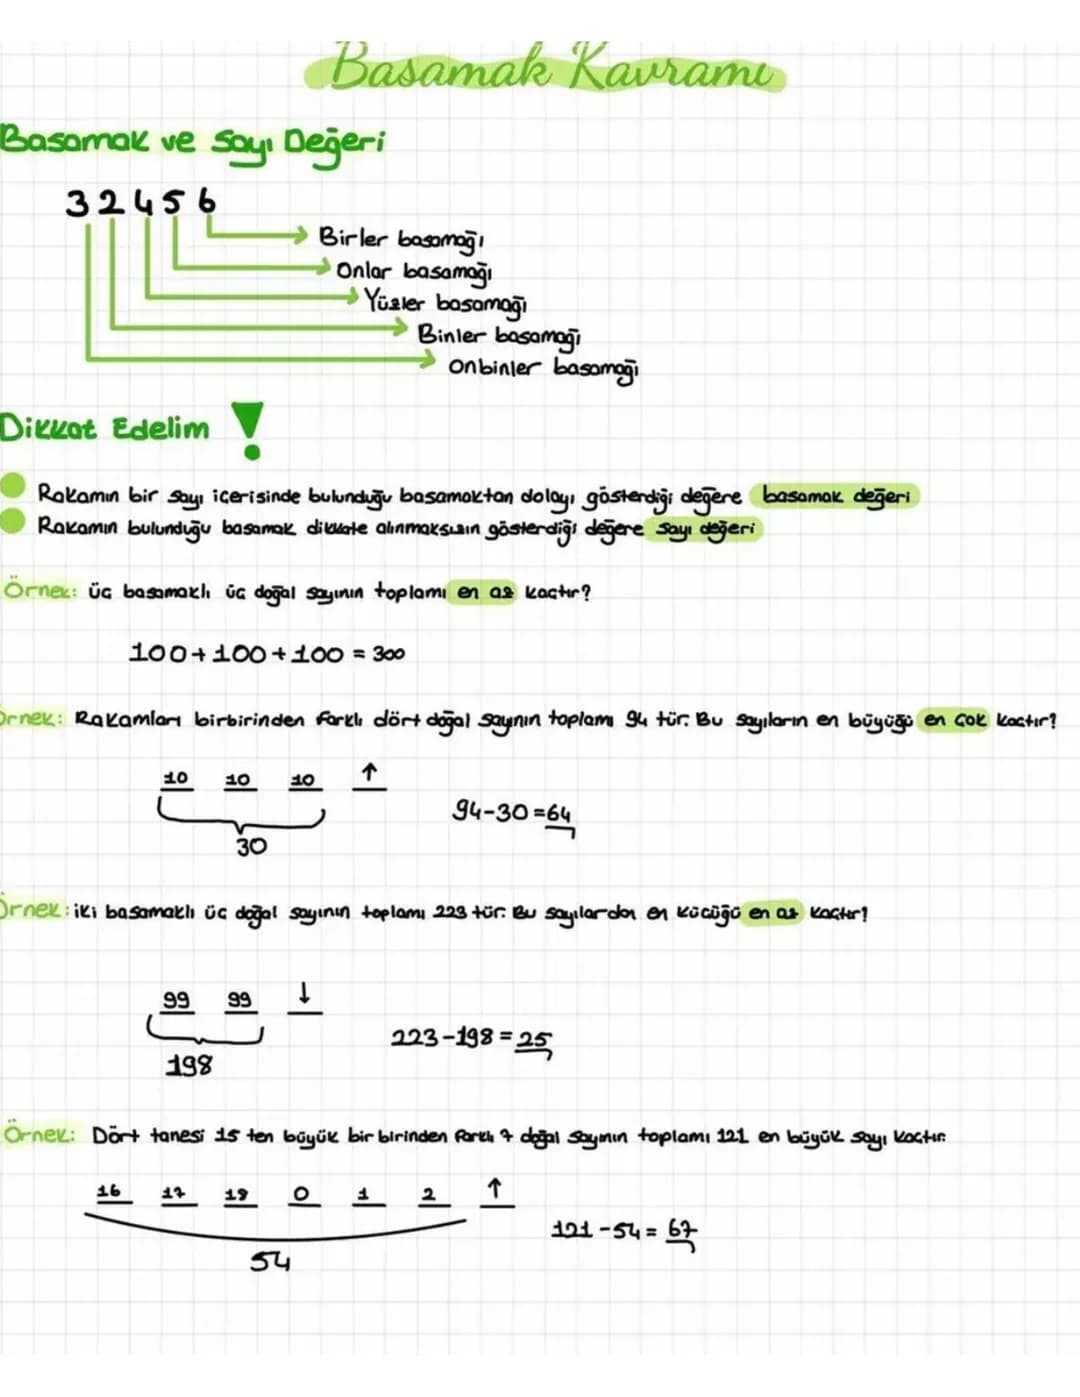 Basamak Kavramı
Basamak ve Sayı Değeri
32456
Birler basamağı
Onlar basamağı
Yüzler basamağı
Binler basamağı
Onbinler basamağı
Dikkat Edelim !
Rakamın bir sayı içerisinde bulunduğu basamaktan dolayı gösterdiği değere basamak değeri
Rakamın bulunduğu basamak dikkate alınmaksızın gösterdiği değere sayı değeri
Örnek: üç basamaklı üç doğal sayının toplamı en az kaçtır?
100+100+100 = 300
Örnek: Rakamları birbirinden farklı dört doğal sayının toplamı 94 tür. Bu sayıların en büyüğü en çok kaçtır?
10 10 10 ↑
94-30=64
30
Örnek: iki basamaklı üç doğal sayının toplamı 223 tür. Bu sayılardan en küçüğü en az kaçtır?
99 99 ↓
223-198=25
198
Örnek: Dört tanesi 15 ten büyük birbirinden farklı 7 doğal sayının toplamı 121 en büyük sayı kaçtır.
16 17 18 0 1 2 ↑
121-54= 67
54